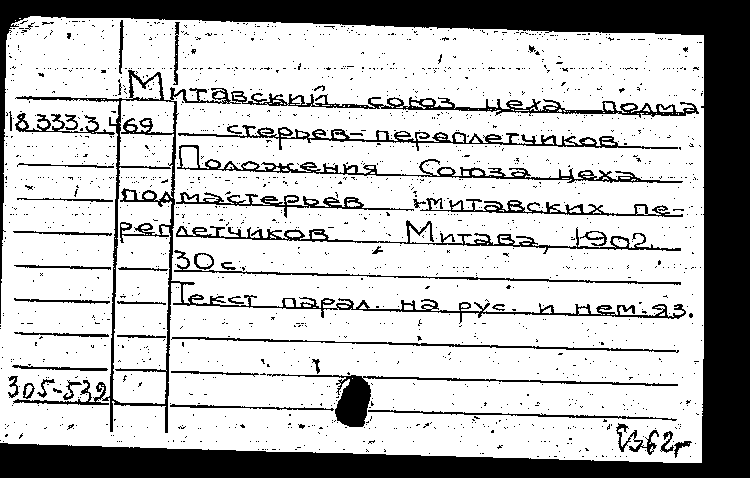 Митавский союз цеха подма-
18.333.3.469 стерьев-переплетчиков.
Положения Союза цеха
подмастерьев митавских пе-
реплетчиков. Митава, 1902.
30 с.
Текст парал. на рус. и нем. яз.
305-539
62г